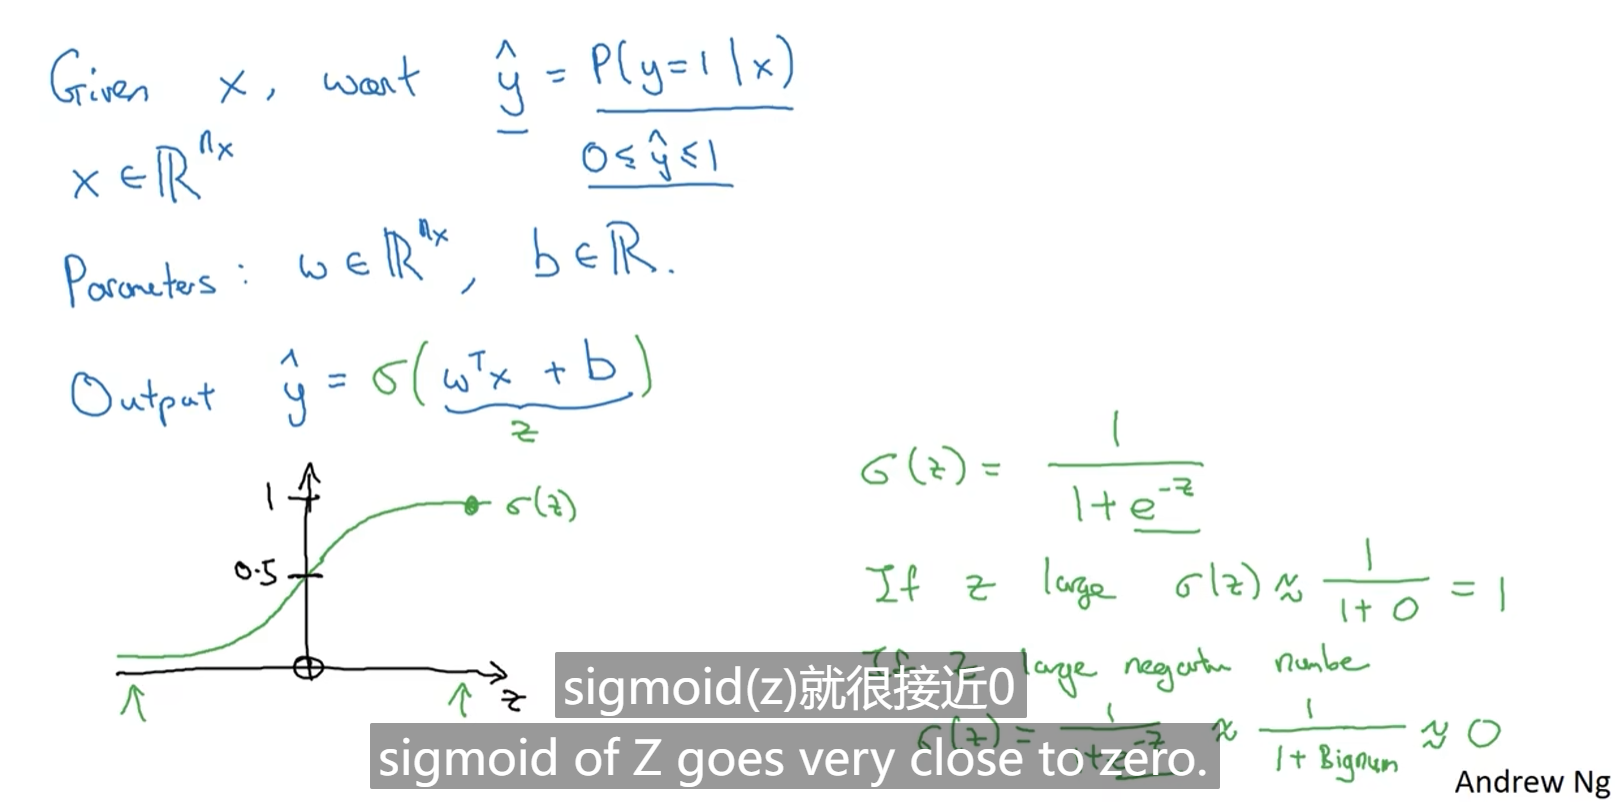 Given x, want ŷ = P(y=1|x)
x ∈ ℝⁿˣ
0 ≤ ŷ ≤ 1
Parameters: w ∈ ℝⁿˣ, b ∈ ℝ.
Output ŷ = σ(wᵀx + b)
z
1
0.5
σ(z)
z
σ(z) = 1/(1+e⁻ᶻ)
If z large σ(z) ≈ 1/(1+0) = 1
If z large negative number
σ(z) = 1/(1+e⁻ᶻ) ≈ 1/(1+Bignum) ≈ 0
sigmoid(z)就很接近0
sigmoid of Z goes very close to zero.
Andrew Ng